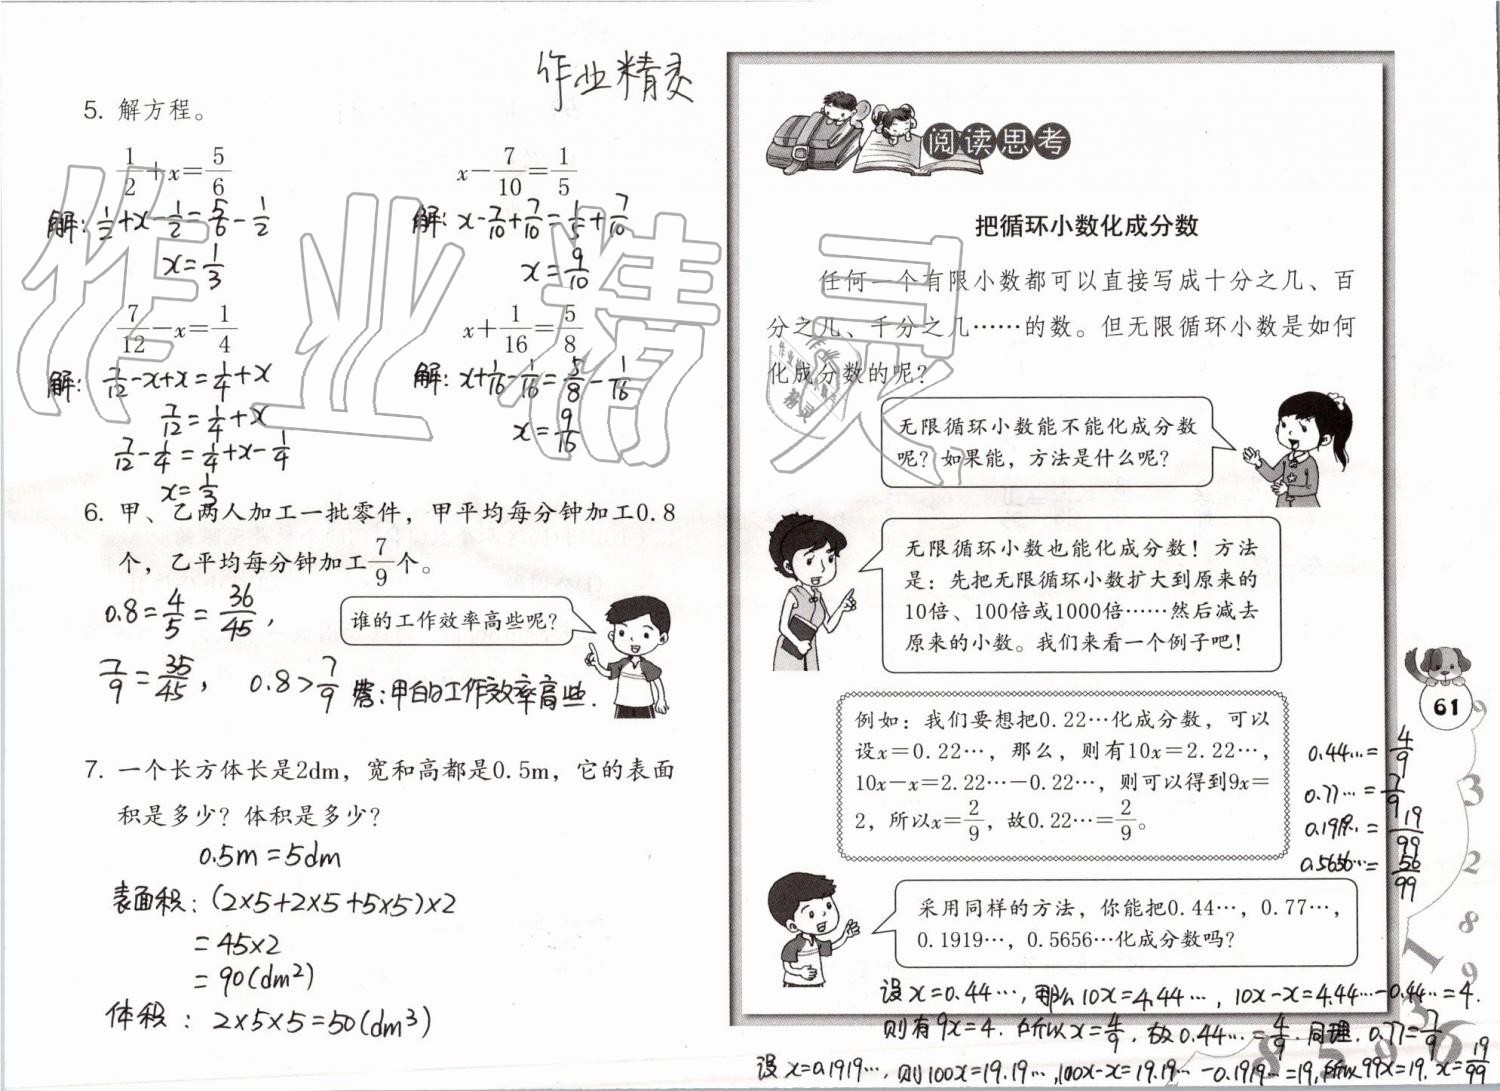 作业精灵
5. 解方程。
1/2+x=5/6
x-7/10=1/5
解: 1/2+x-1/2=5/6-1/2
解: x-7/10+7/10=1/5+7/10
x=1/3
x=9/10
7/12-x=1/4
x+1/16=5/8
解: 7/12-x+x=1/4+x
解: x+1/16-1/16=5/8-1/16
7/12=1/4+x
x=9/16
7/12-1/4=1/4+x-1/4
x=1/3
6. 甲、乙两人加工一批零件，甲平均每分钟加工0.8
个，乙平均每分钟加工7/9个。
0.8=4/5=36/45，
谁的工作效率高些呢？
7/9=35/45， 0.8>7/9 答：甲的工作效率高些.
7. 一个长方体长是2dm，宽和高都是0.5m，它的表面
积是多少？体积是多少？
0.5m=5dm
表面积：(2×5+2×5+5×5)×2
=45×2
=90(dm²)
体积：2×5×5=50(dm³)
作业精灵
阅读思考
把循环小数化成分数
任何一个有限小数都可以直接写成十分之几、百
分之几、千分之几……的数。但无限循环小数是如何
化成分数的呢？
无限循环小数能不能化成分数
呢？如果能，方法是什么呢？
无限循环小数也能化成分数！方法
是：先把无限循环小数扩大到原来的
10倍、100倍或1000倍……然后减去
原来的小数。我们来看一个例子吧！
例如：我们要想把0.22…化成分数，可以
设x=0.22…，那么，则有10x=2.22…，
10x-x=2.22…-0.22…，则可以得到9x=
2，所以x=2/9，故0.22…=2/9。
0.44…=4/9
0.77…=7/9
0.1919…=19/99
0.5656…=56/99
采用同样的方法，你能把0.44…，0.77…，
0.1919…，0.5656…化成分数吗？
设x=0.44…，那么10x=4.44…，10x-x=4.44…-0.44…=4.
则有9x=4. 所以x=4/9，故0.44…=4/9. 同理. 0.77=7/9
设x=0.1919…，则100x=19.19…，100x-x=19.19…-0.1919…=19，所以99x=19. x=19/99
61